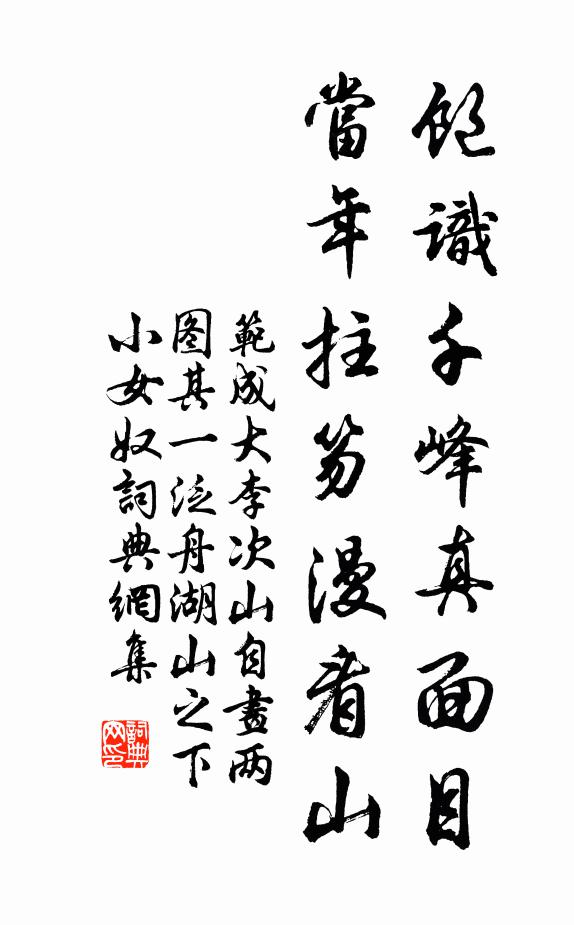 飽識千峰真面目
當年拄笏漫看山
範成大李次山自畫兩
图其一泛舟湖山之下
小女奴詞典網集
詞典
网印